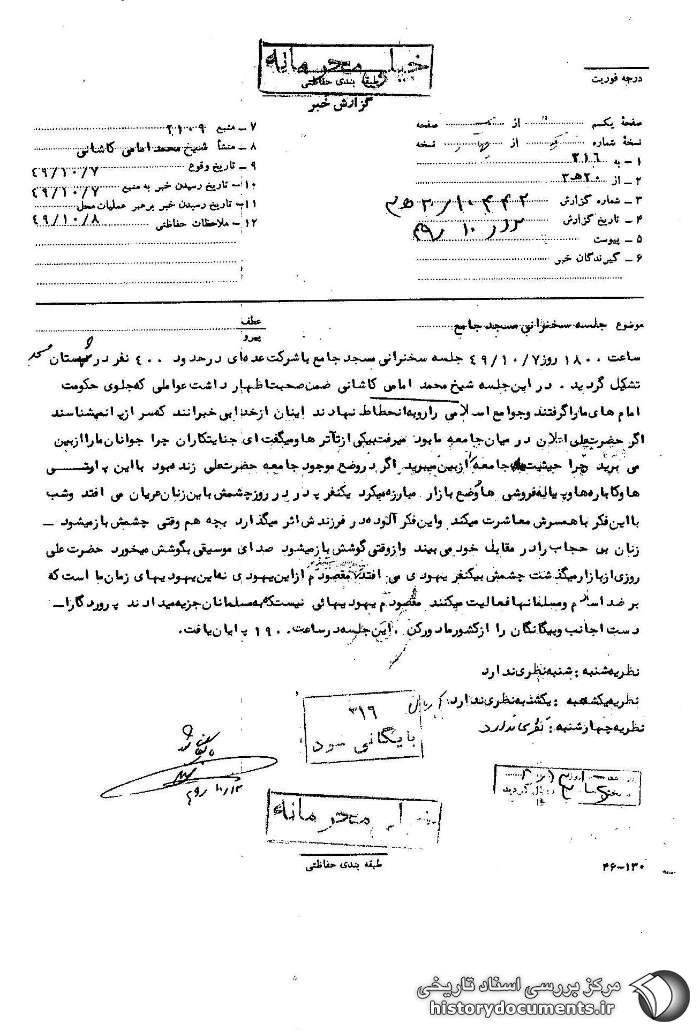 خیلی محرمانه
طبقه بندی حفاظتی
گزارش خبر
درجه فوریت
صفحهٔ یکم از صفحه
نسخهٔ شماره از نسخه
۱ – به ۳۱۶
۲ – از ۲۰ ه ۳
۳ – شماره گزارش
۴ – تاریخ گزارش
۵ – پیوست
۶ – گیرندگان خبر
۷ – منبع ۲۱۰۹
۸ – منشأ شیخ محمد امامی کاشانی
۹ – تاریخ وقوع ۴۹/۱۰/۷
۱۰ – تاریخ رسیدن خبر به منبع ۴۹/۱۰/۷
۱۱ – تاریخ رسیدن خبر برهبر عملیات محل ۴۹/۱۰/۸
۱۲ – ملاحظات حفاظتی
موضوع جلسه سخنرانی مسجد جامع
عطف
پیرو
ساعت ۱۸۰۰ روز ۴۹/۱۰/۷ جلسه سخنرانی مسجد جامع با شرکت عده ای در حدود ۴۰۰ نفر در شبستان مسجد
تشکیل گردید . در این جلسه شیخ محمد امامی کاشانی ضمن صحبت اظهار داشت عواملی که جلوی حکومت
امام های ما را گرفتند و جوامع اسلامی را رو به انحطاط نهادند اینان از خدا بی خبرانند که سر از پا نمیشناسند
اگر حضرت علی الان در میان جامعه ما بود میرفت یکی از تآترها و میگفت ای جنایتکاران چرا جوانان ما را از بین
می برید چرا حیثیت جامعه را از بین میبرید اگر در وضع موجود جامعه حضرت علی زنده بود با این
ها و کاباره ها و پیاله فروشی ها و وضع بازار مبارزه میکرد یکنفر پدر در روز چشمش باین زنان عریان می افتد و شب
با این فکر با همسرش معاشرت میکند و این فکر آلوده در فرزندش اثر میگذارد بچه هم وقتی چشمش باز میشود –
زنان بی حجاب را در مقابل خود می بیند و از وقتی گوشش باز میشود صدای موسیقی بگوشش میخورد حضرت علی
روزی از بازار میگذشت چشمش بیکنفر یهودی می افتد مقصودم از این یهودی نه این یهودیهای زمان ما است که
بر ضد اسلام و مسلمانها فعالیت میکنند مقصودم یهودیهائی نیست که به مسلمانان جزیه میدادند پروردگارا –
دست اجانب و بیگانگان را از کشور ما دور کن . این جلسه در ساعت ۱۹۰۰ پایان یافت .
نظریه شنبه : شنبه نظری ندارد
نظریه یکشنبه : یکشنبه نظری ندارد
نظریه چهارشنبه : نظری ندارد
۳۱۶
بایگانی شود
خیلی محرمانه
طبقه بندی حفاظتی
۴۶-۱۳۰
مرکز بررسی اسناد تاریخی
historydocuments.ir